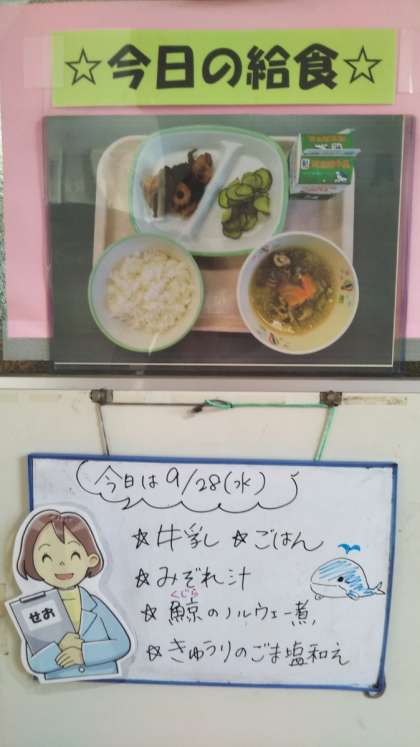 ☆今日の給食☆
今日は9/28(水)
☆牛乳 ☆ごはん
☆みぞれ汁
くじら
☆鯨のノルウェー煮
☆きゅうりのごま塩和え
せお